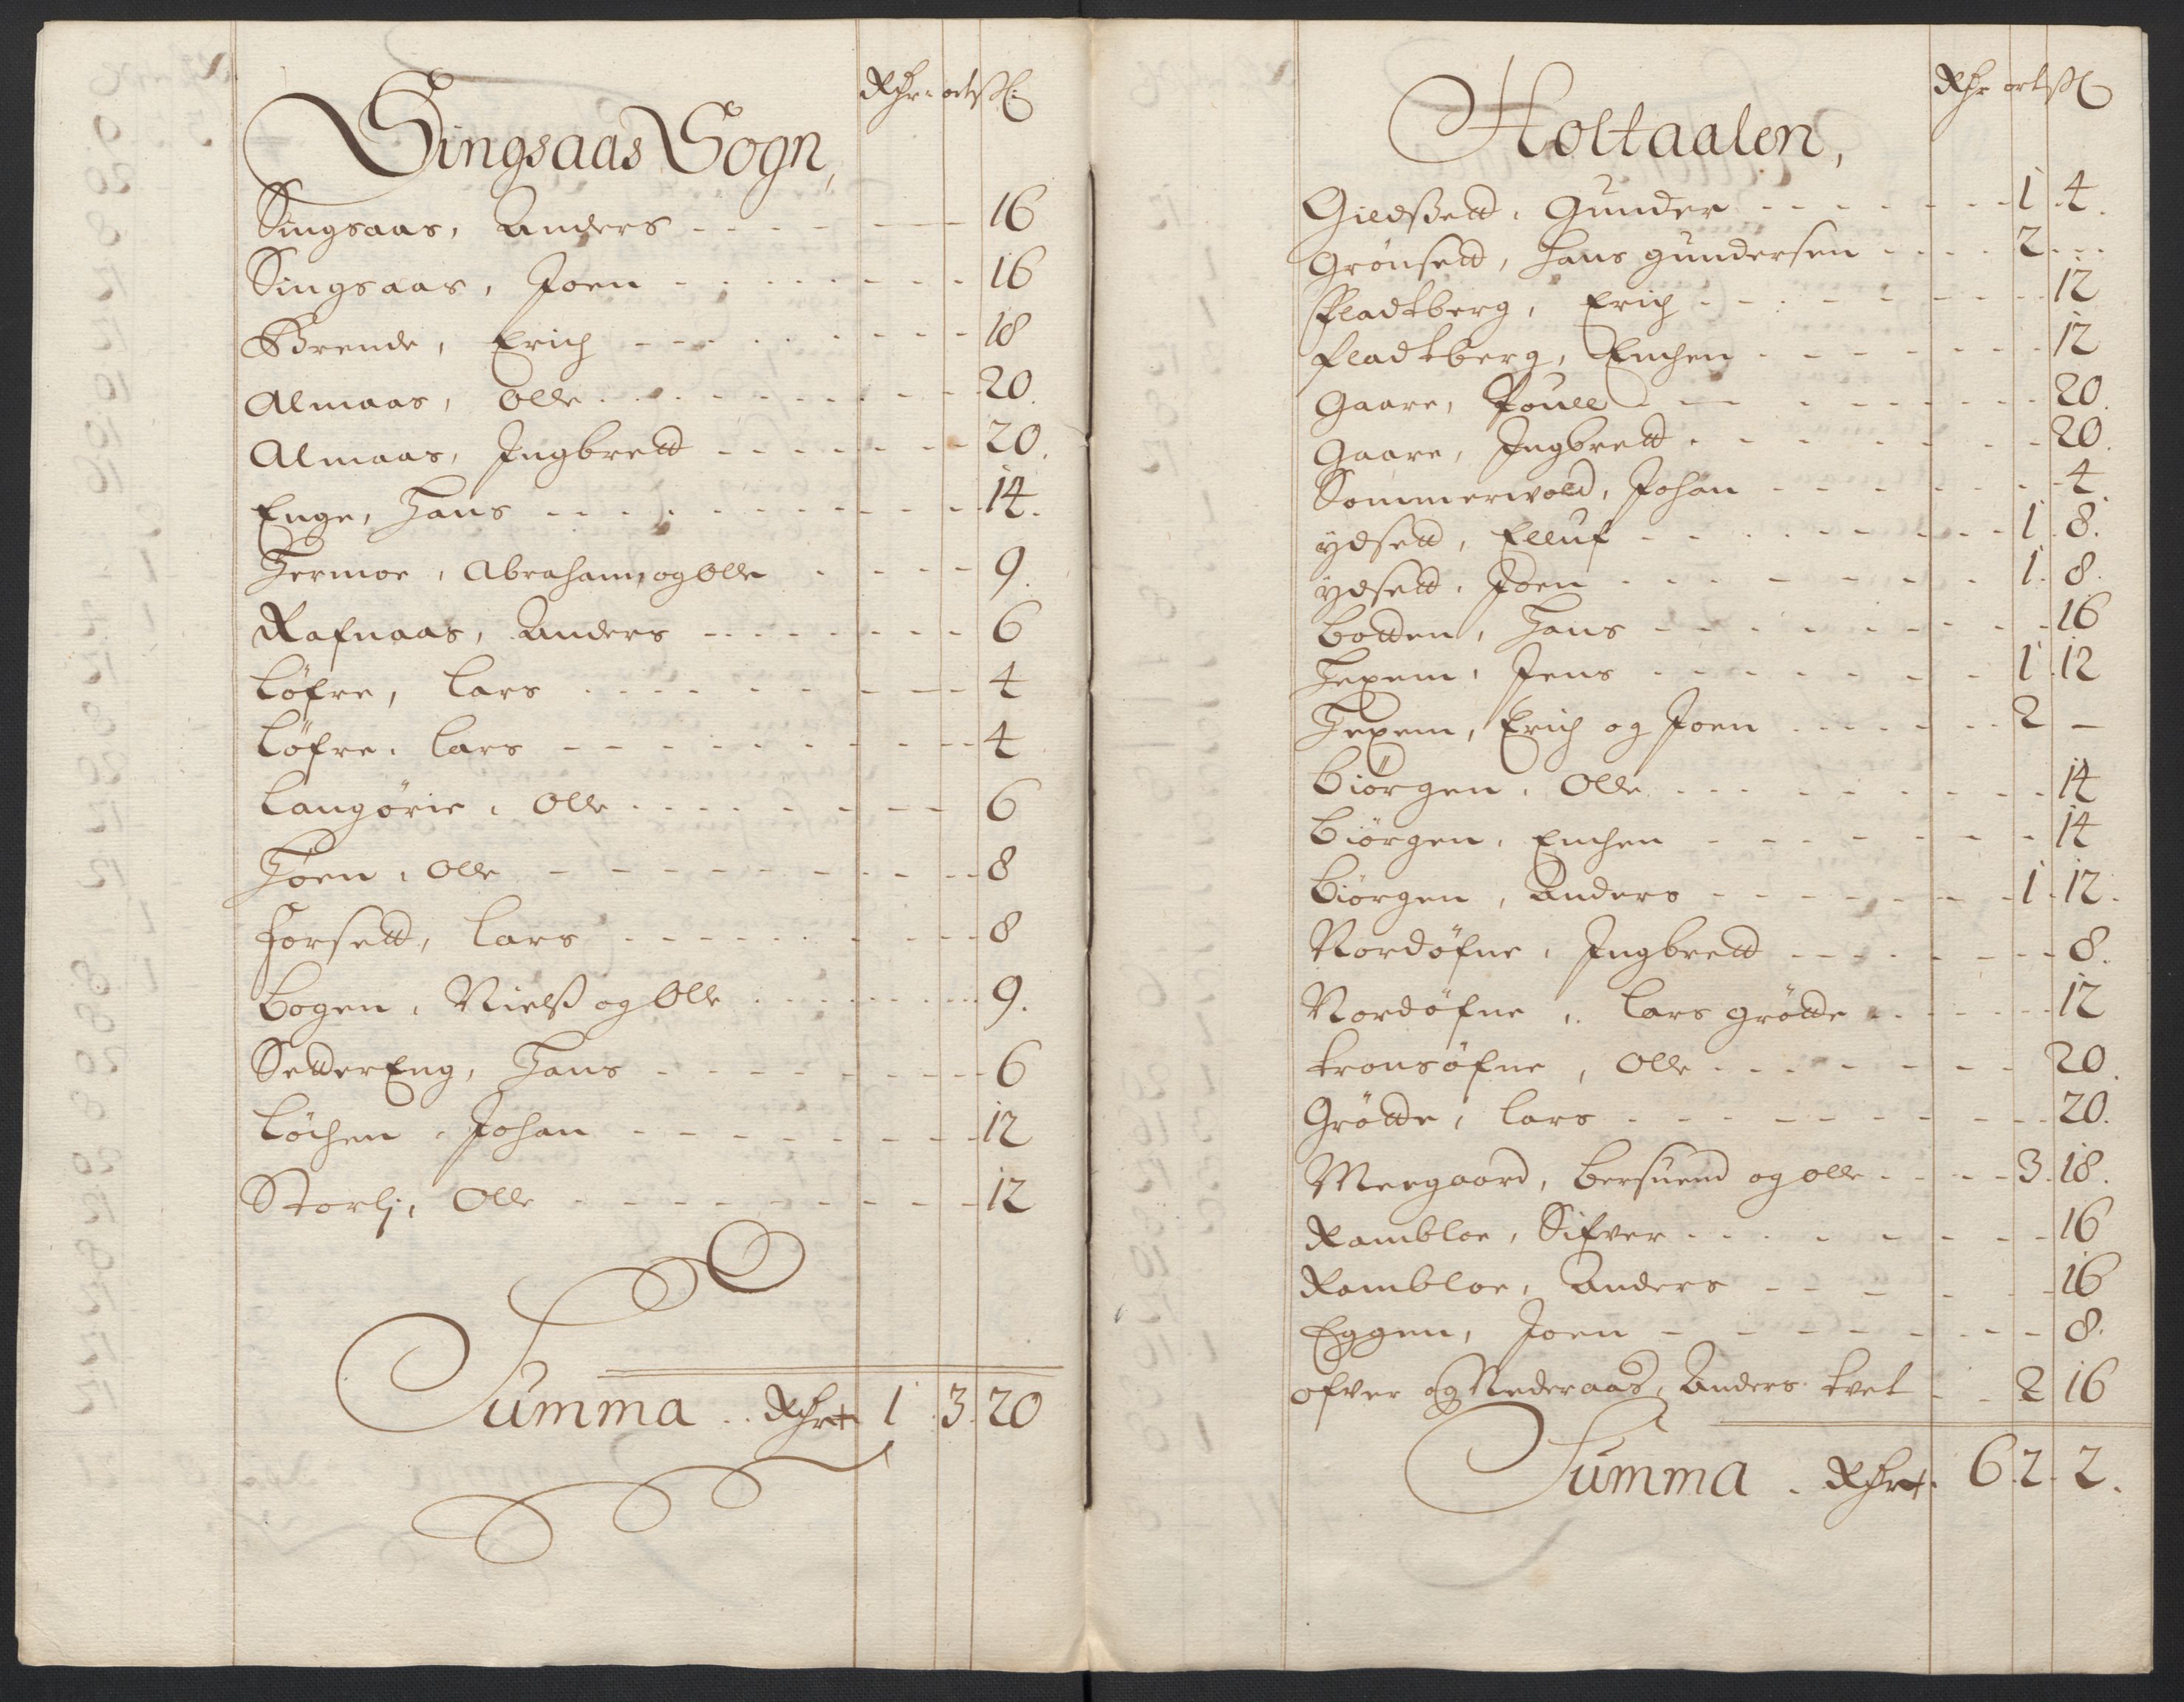 Rdr: ort ß:
Singsaas Sogn,
Singsaas, Anders - - - - 16
Singsaas, Joen - - - - 16
Brende, Erich - - - - 18
Almaas, Olle - - - - 20.
Almaas, Ingbrett - - - - 20.
Enge, Hans - - - - 14.
Hermoe, Abraham, og Olle - - - - 9.
Rafnaas, Anders - - - - 6
Løfre, Lars - - - - 4
Løfre, Lars - - - - 4
Langørie, Olle - - - - 6
Høen, Olle - - - - 8
Forsett, Lars - - - - 8
Bogen, Nielß og Olle - - - - 9.
SetterEng, Hans - - - - 6
Løchen, Johan - - - - 12
Storlj, Olle - - - - 12
Summa .. Rdr 1 . 3. 20
Rdr ort ß
Holtaalen,
Gieldßett, Gunder - - - - 1. 4.
Grønsett, Hans Gundersen - - - - 2 - - -
Fladtberg, Erich - - - - 12
Fladtberg, Enchen - - - - 12
Gaare, Pouell - - - - 20.
Gaare, Ingbrett - - - - 20.
Sommerwold, Johan - - - - 4.
ydsett, Elluf - - - - 1. 8.
ydsett, Joen - - - - 1. 8.
Botten, Hans - - - - 16
Hexem, Jens - - - - 1. 12
Hexem, Erich og Joen - - - - 2 -
Biørgen, Olle - - - - 14
Biørgen, Enchen - - - - 14
Biørgen, Anders - - - - 1. 12.
Nordøfne, Ingbrett - - - - 8.
Nordøfne, Lars grøtte - - - - 12
tronsøfne, Olle - - - - 20.
Grøtte, Lars - - - - 20.
Meegaard, Bersuend og olle - - - - 3. 18.
Rambloe, Sifver - - - - 16
Rambloe, Anders - - - - 16
Eggen, Joen - - - - 8.
ofver og Nederaas, Anders tvet - - 2 16
Summa . Rdr. 6. 2. 2.